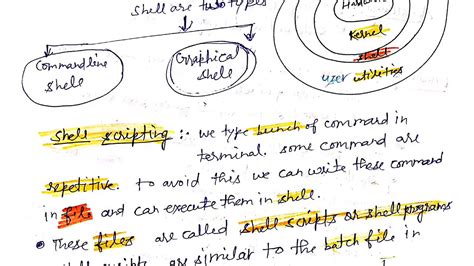 shell are two types
Commandline
shell
Graphical
shell
Hardware
Kernel
shell
user utilities
Shell scripting :- we type bunch of command in
terminal. some command are
repetitive. to avoid this we can write these command
in file and can execute them in shell.
• These files are called shell scripts or shell programs
are similar to the batch file in